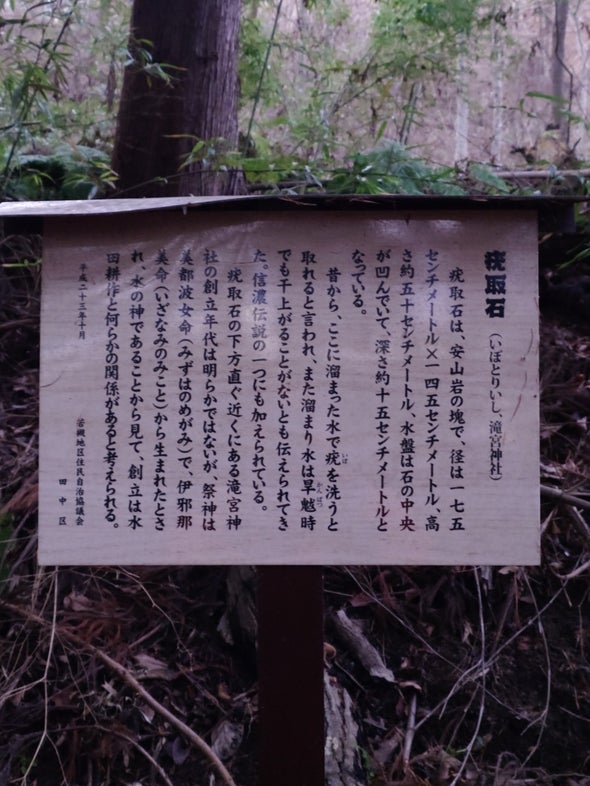 疣取石 (いぼとりいし、滝宮神社)
疣取石は、安山岩の塊で、径は一七五
センチメートル×一四五センチメートル、高
さ約五十センチメートル、水盤は石の中央
が凹んでいて、深さ約十五センチメートルと
なっている。
昔から、ここに溜まった水で疣を洗うと
いぼ
取れると言われ、また溜まり水は旱魃時
かんばつ
でも干上がることがないとも伝えられてき
た。信濃伝説の一つにも加えられている。
疣取石の下方直ぐ近くにある滝宮神
社の創立年代は明らかではないが、祭神は
美都波女命(みずはのめがみ)で、伊邪那
美命(いざなみのみこと)から生まれたとさ
れ、水の神であることから見て、創立は水
田耕作と何らかの関係があると考えられる。
平成二十三年十月
若槻地区住民自治協議会
田中区